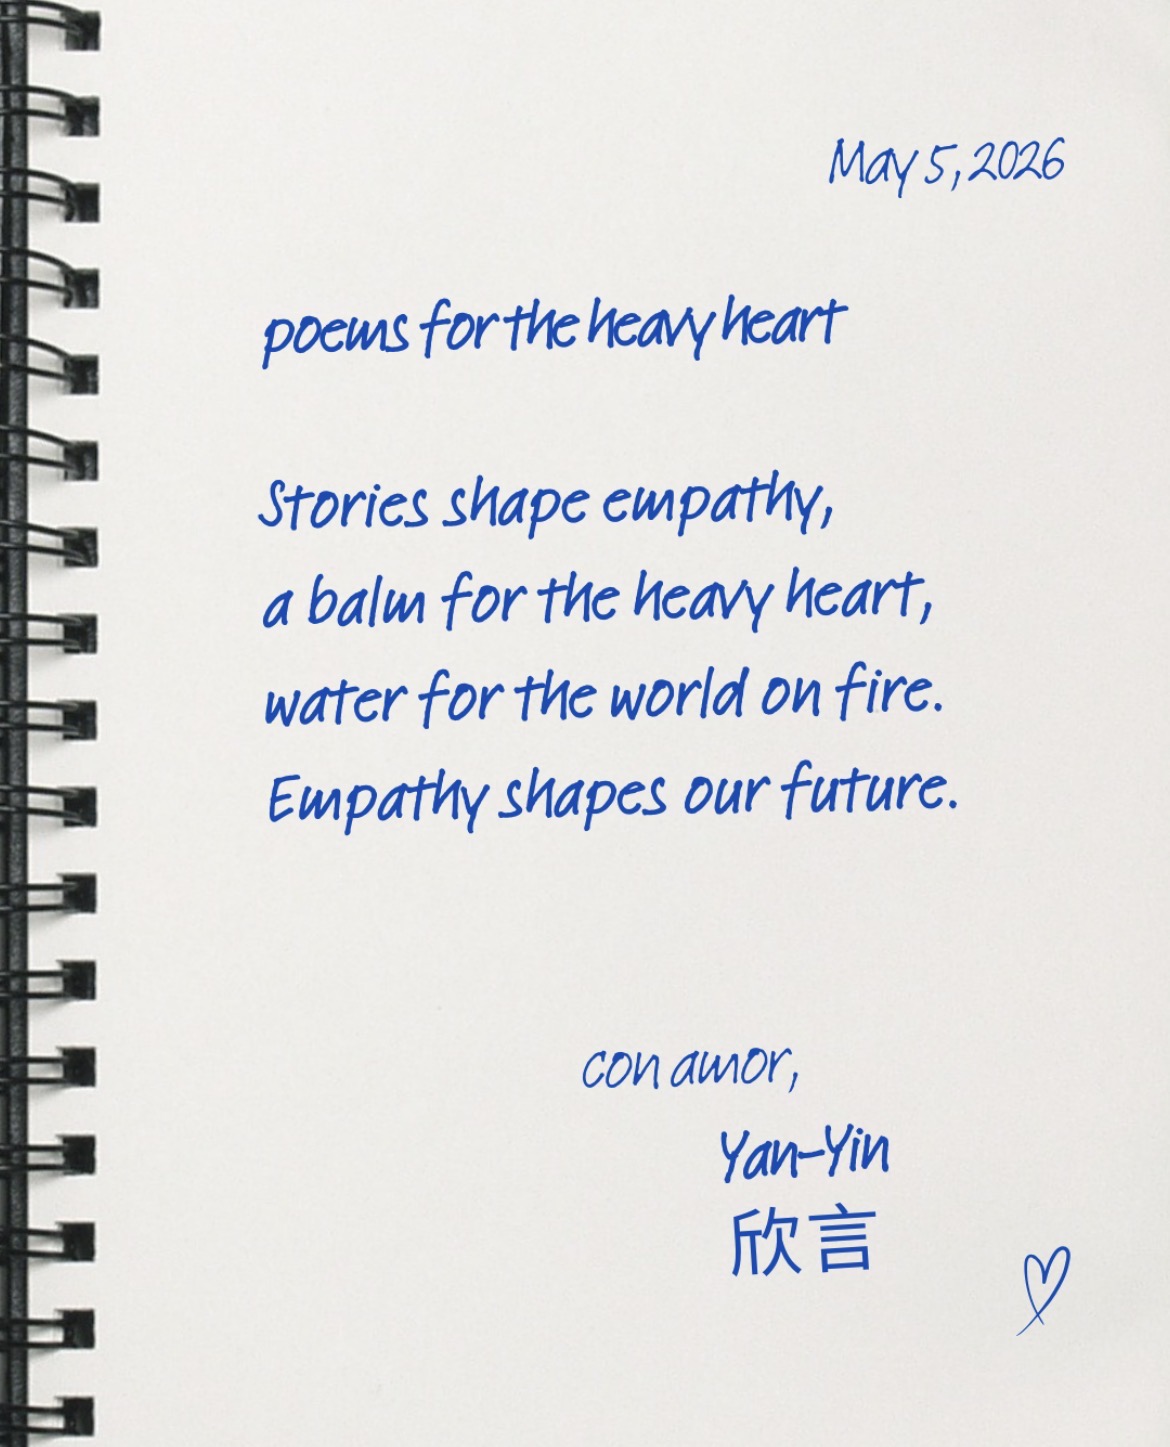 May 5, 2026
poems for the heavy heart
Stories shape empathy,
a balm for the heavy heart,
water for the world on fire.
Empathy shapes our future.
con amor,
Yan-Yin
欣言